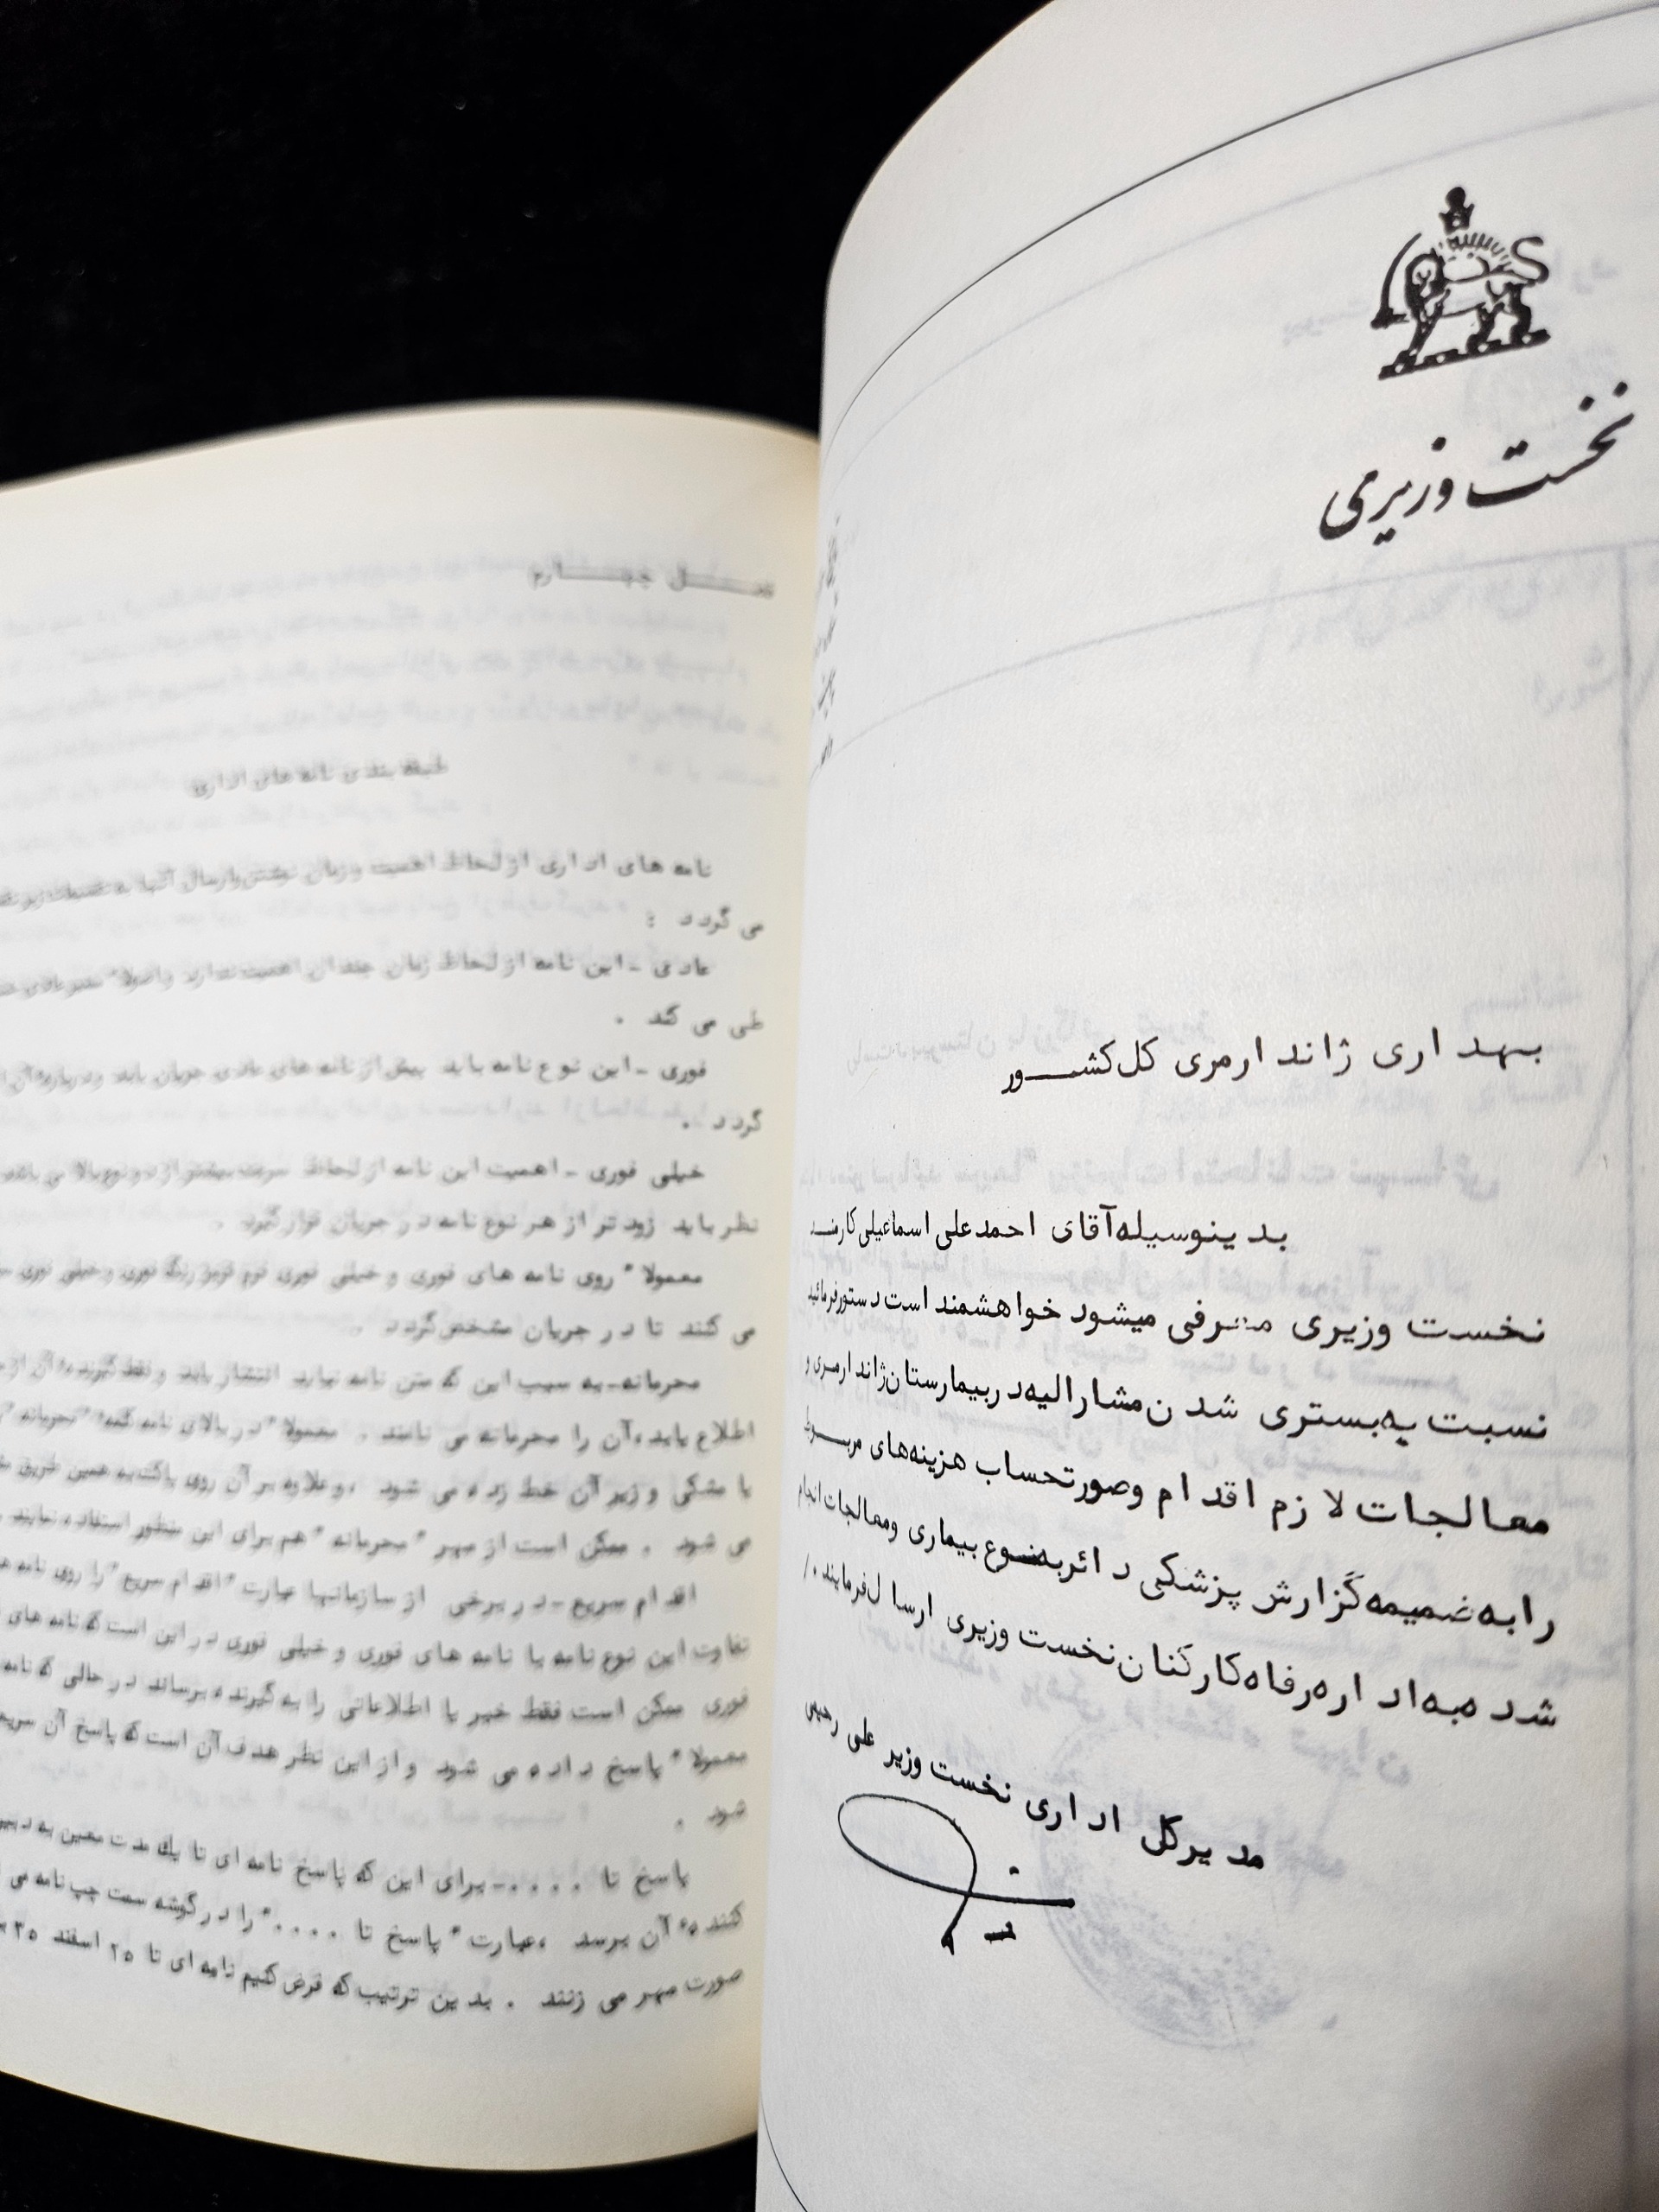 نخست وزیری
بهداری ژاندارمری کل کشور
بدینوسیله آقای احمدعلی اسماعیلی کارمند
نخست وزیری معرفی میشود خواهشمند است دستورفرمائید
نسبت به بستری شدن مشارالیه در بیمارستان ژاندارمری و
معالجات لازم اقدام وصورتحساب هزینه‌های مربوط
رابه ضمیمه گزارش پزشکی دائربه نوع بیماری ومعالجات انجام
شده به اداره رفاه کارکنان نخست وزیری ارسال فرمایند ./
مدیرکل اداری نخست وزیر علی رحیمی
فصل چهارم
طبقه بندی نامه های اداری
نامه های اداری از لحاظ اهمیت و زمان نوشتن وارسال آنها به تقسیمات زیر
می گردد :
عادی - این نامه از لحاظ زمان چندان اهمیت ندارد واصولا" سیر عادی
طی می کند .
فوری - این نوع نامه باید پیش از نامه های عادی جریان یابد ودرباره آن
گردد .
خیلی فوری - اهمیت این نامه از لحاظ سرعت بیشتر از دو نوع بالا می باشد
نظر باید زودتر از هر نوع نامه در جریان قرار گیرد .
معمولا" روی نامه های فوری و خیلی فوری فرم قرمز رنگ فوری وخیلی فوری
می کنند تا در جریان مشخص گردد .
محرمانه - به سبب این که متن نامه نباید انتشار یابد و فقط گیرنده آن از
اطلاع یابد، آن را محرمانه می نامند . معمولا" در بالای نامه کلمه "محرمانه"
یا مشکی و زیر آن خط زده می شود ، وعلاوه بر آن روی پاکت به همین طریق
می شود . ممکن است از مهر "محرمانه" هم برای این منظور استفاده نمایند
اقدام سریع - در برخی از سازمانها عبارت "اقدام سریع" را روی نامه
تفاوت این نوع نامه با نامه های فوری و خیلی فوری در این است که نامه های
فوری ممکن است فقط خبر یا اطلاعاتی را به گیرنده برساند در حالی که نامه
معمولا" پاسخ داده می شود و از این نظر هدف آن است که پاسخ آن سریع
شود .
پاسخ تا .... - برای این که پاسخ نامه ای تا یک مدت معین به
کننده آن برسد ، عبارت "پاسخ تا ...." را در گوشه سمت چپ نامه می
صورت مهر می زنند . بدین ترتیب که فرض کنیم نامه ای تا ۲۵ اسفند ۳۵